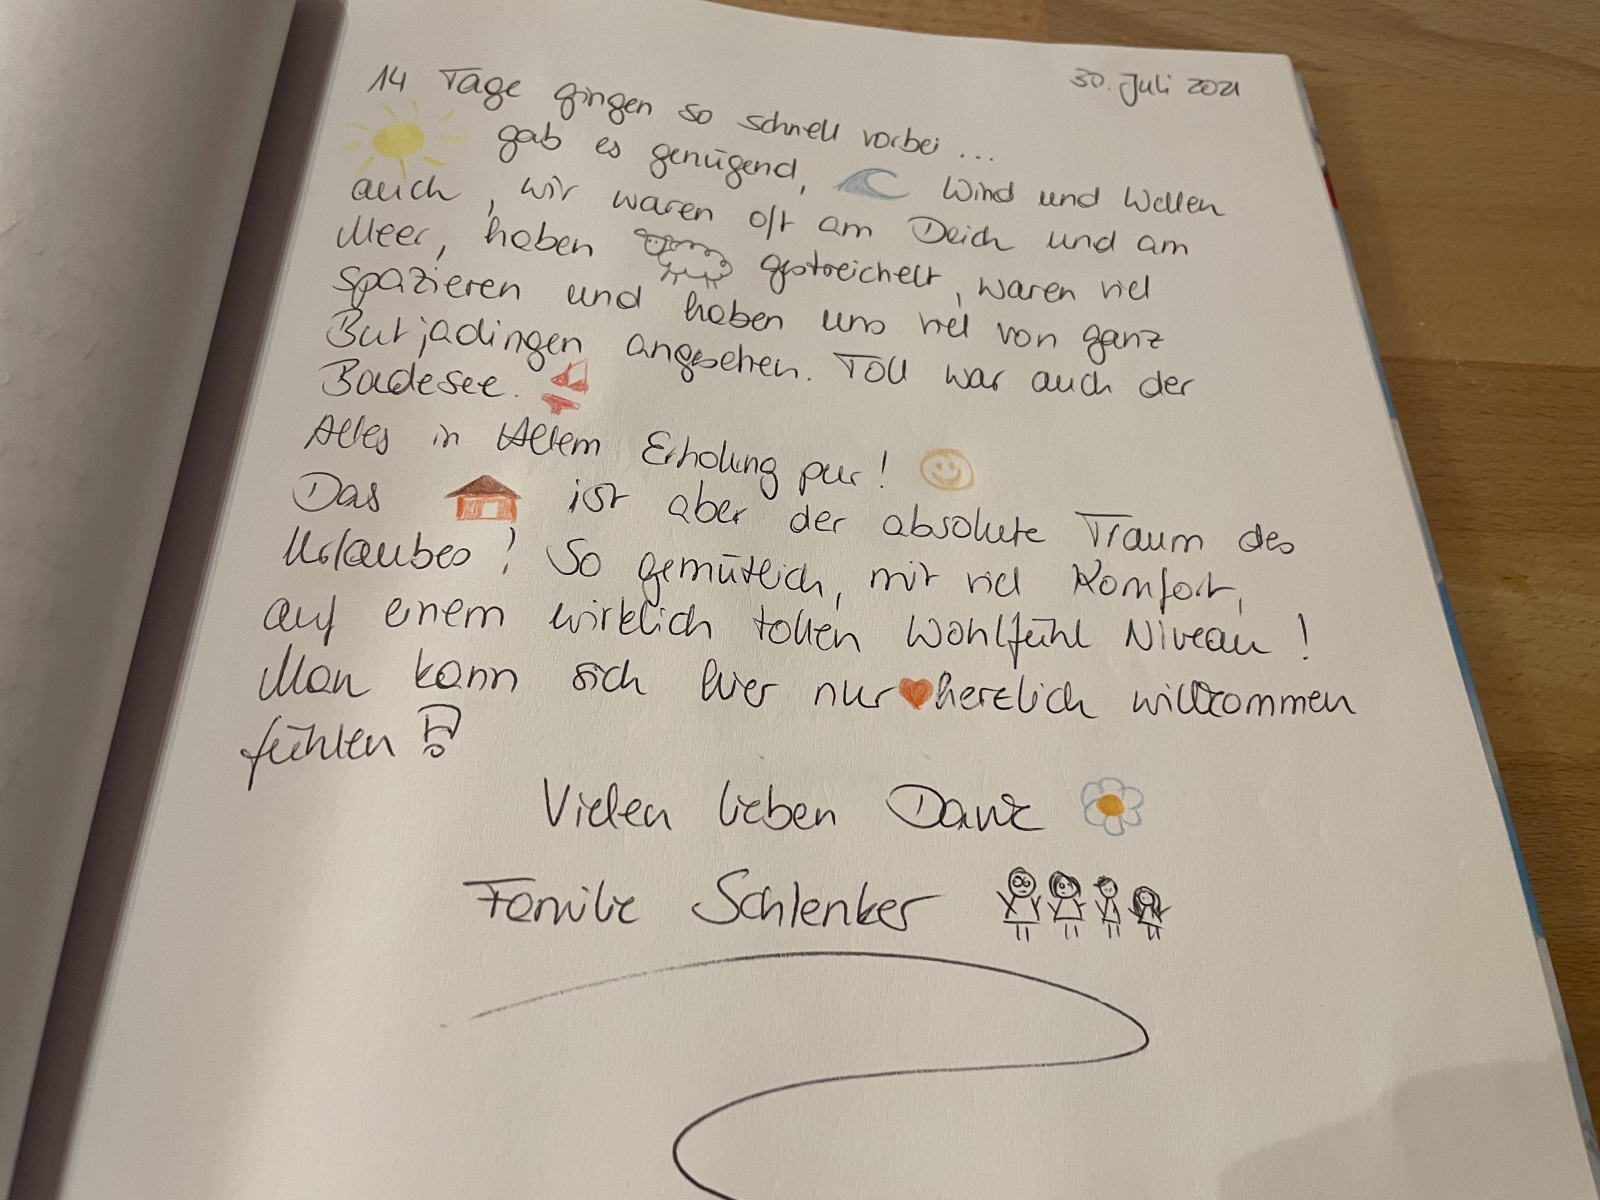 30. Juli 2021
14 Tage gingen so schnell vorbei ...
gab es genügend, Wind und Wellen
auch, wir waren oft am Deich und am
Meer, haben gestreichelt, waren viel
spazieren und haben uns viel von ganz
Butjadingen angesehen. Toll war auch der
Badesee.
Alles in Allem Erholung pur!
Das ist aber der absolute Traum des
Urlaubes! So gemütlich, mit viel Komfort,
auf einem wirklich tollen Wohlfühl Niveau!
Man kann sich hier nur herzlich willkommen
fühlen!
Vielen lieben Dank
Familie Schlenker